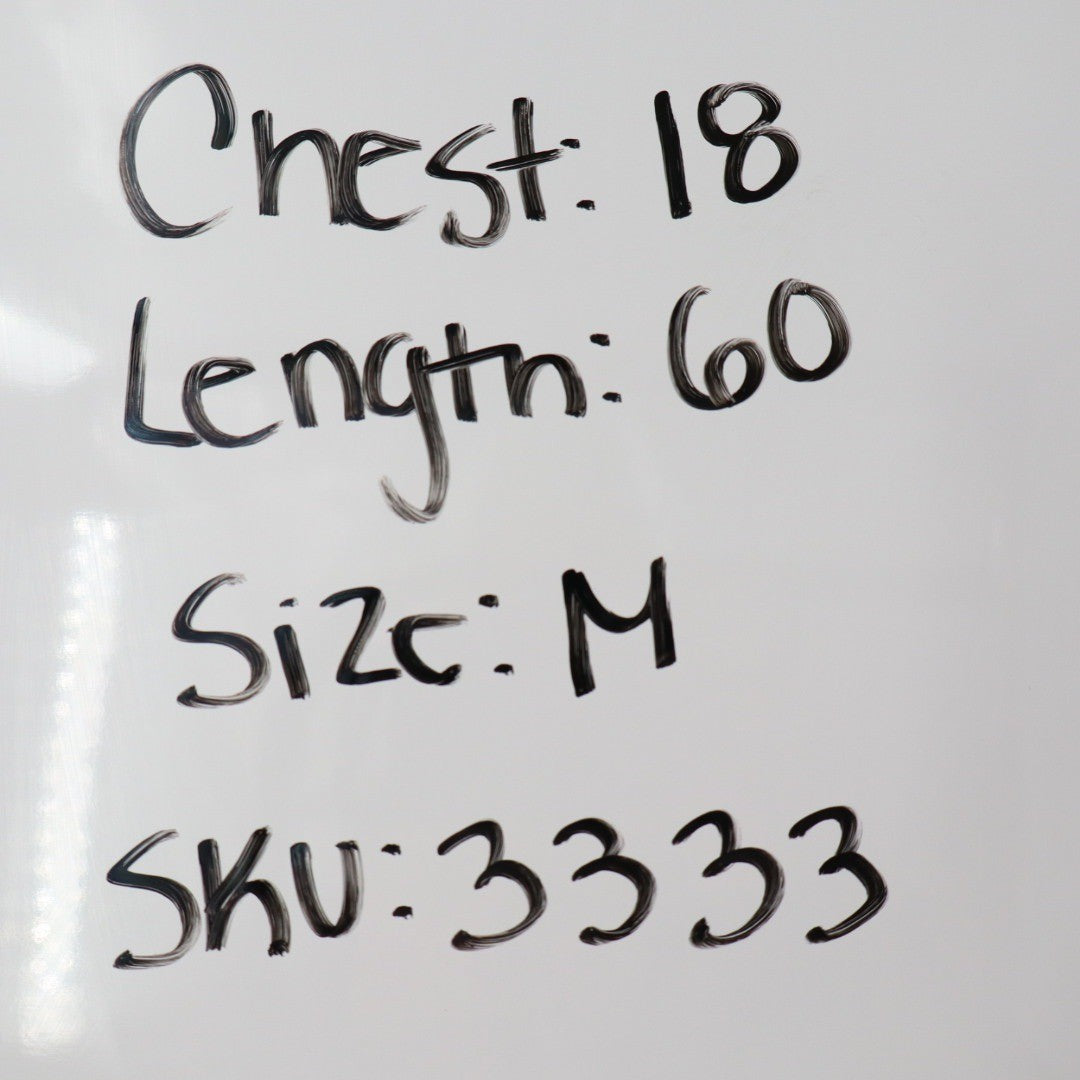 Chest: 18
Length: 60
Size: M
SKU: 3333